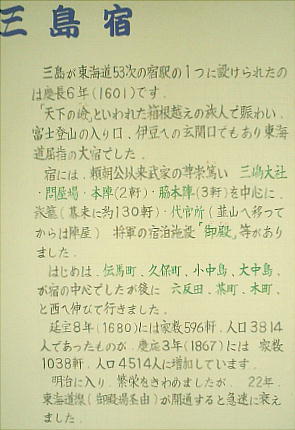 三島宿
三島が東海道53次の宿駅の1つに設けられたの
は慶長6年(1601)です.
「天下の嶮」といわれた箱根越えの旅人で賑わい.
富士登山の入り口、伊豆への玄関口でもあり東海
道屈指の大宿でした.
宿には.頼朝公以来武家の尊崇篤い 三嶋大社
・問屋場・本陣(2軒)・脇本陣(3軒)を中心に.
旅籠(幕末に約130軒)・代官所(韮山へ移って
からは陣屋) 将軍の宿泊施設「御殿」等があり
ました.
はじめは、伝馬町、久保町、小中島、大中島、
が宿の中心でしたが後に 六反田.茶町.木町、
と西へ伸びて行きました.
延宝8年(1680)には家数596軒.人口3814
人であったものが.慶応3年(1867)には 家数
1038軒.人口4514人に増加しています.
明治に入り.繁栄をきわめましたが. 22年.
東海道線(御殿場経由)が開通すると急速に衰え
ました.